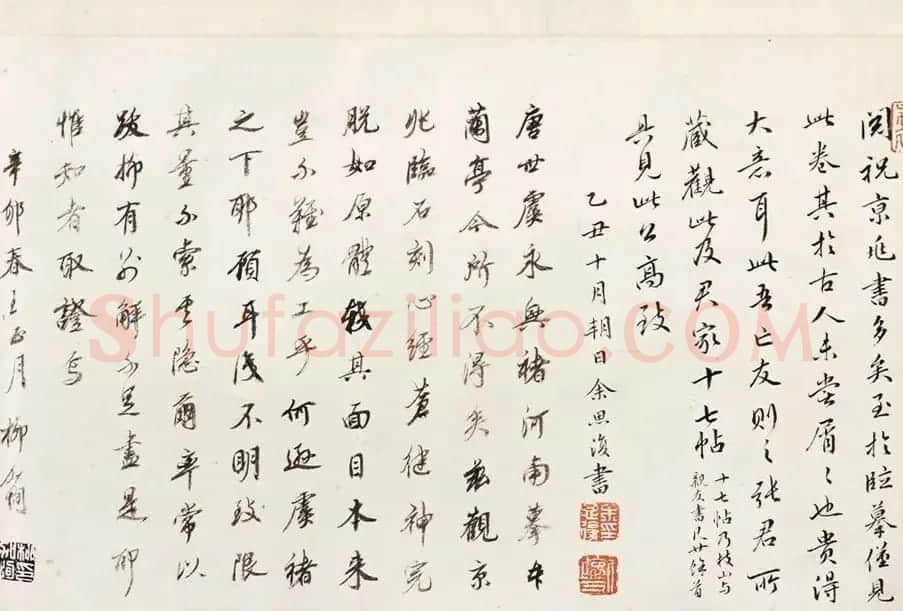 閱祝京兆書多矣至於臨摹僅見
此卷其於古人未嘗屑〻也貴得
大意耳此吾亡友則之張君所
藏觀此及君家十七帖
十七帖乃枝山與
親友書尺廿餘首
具見此公高致
乙丑十月朔日余思復書
唐世虞永興褚河南摹本
蘭亭今所不得矣茲觀京
兆臨石刻心經蒼健神完
脫如原體我其面目本來
豈不難為工乎何遜虞褚
之下耶顧耳淺不明致限
其量不索書隱爾率常以
跋柳有為解不足盡是
惟知者取證焉
辛卯春王正月柳
Shufaziliao.COM